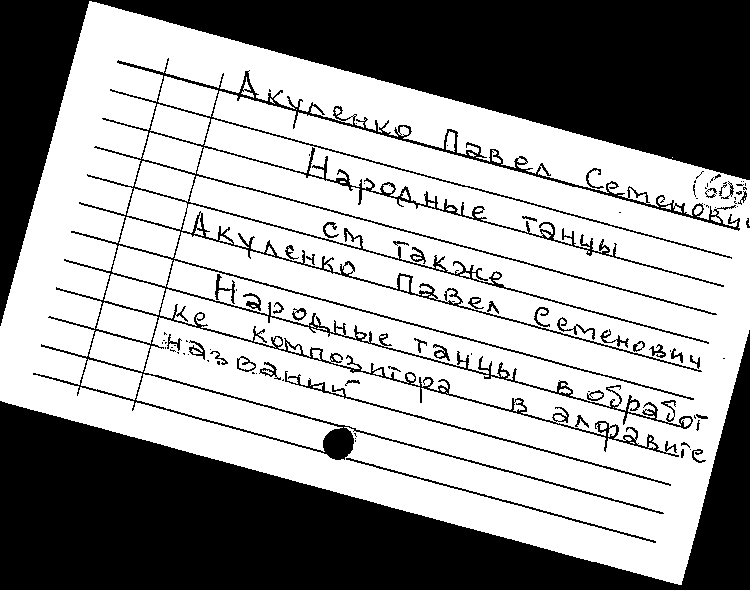 Акуленко Павел Семенович
603
Народные танцы
см также
Акуленко Павел Семенович
Народные танцы в обработ
ке композитора в алфавите
названий